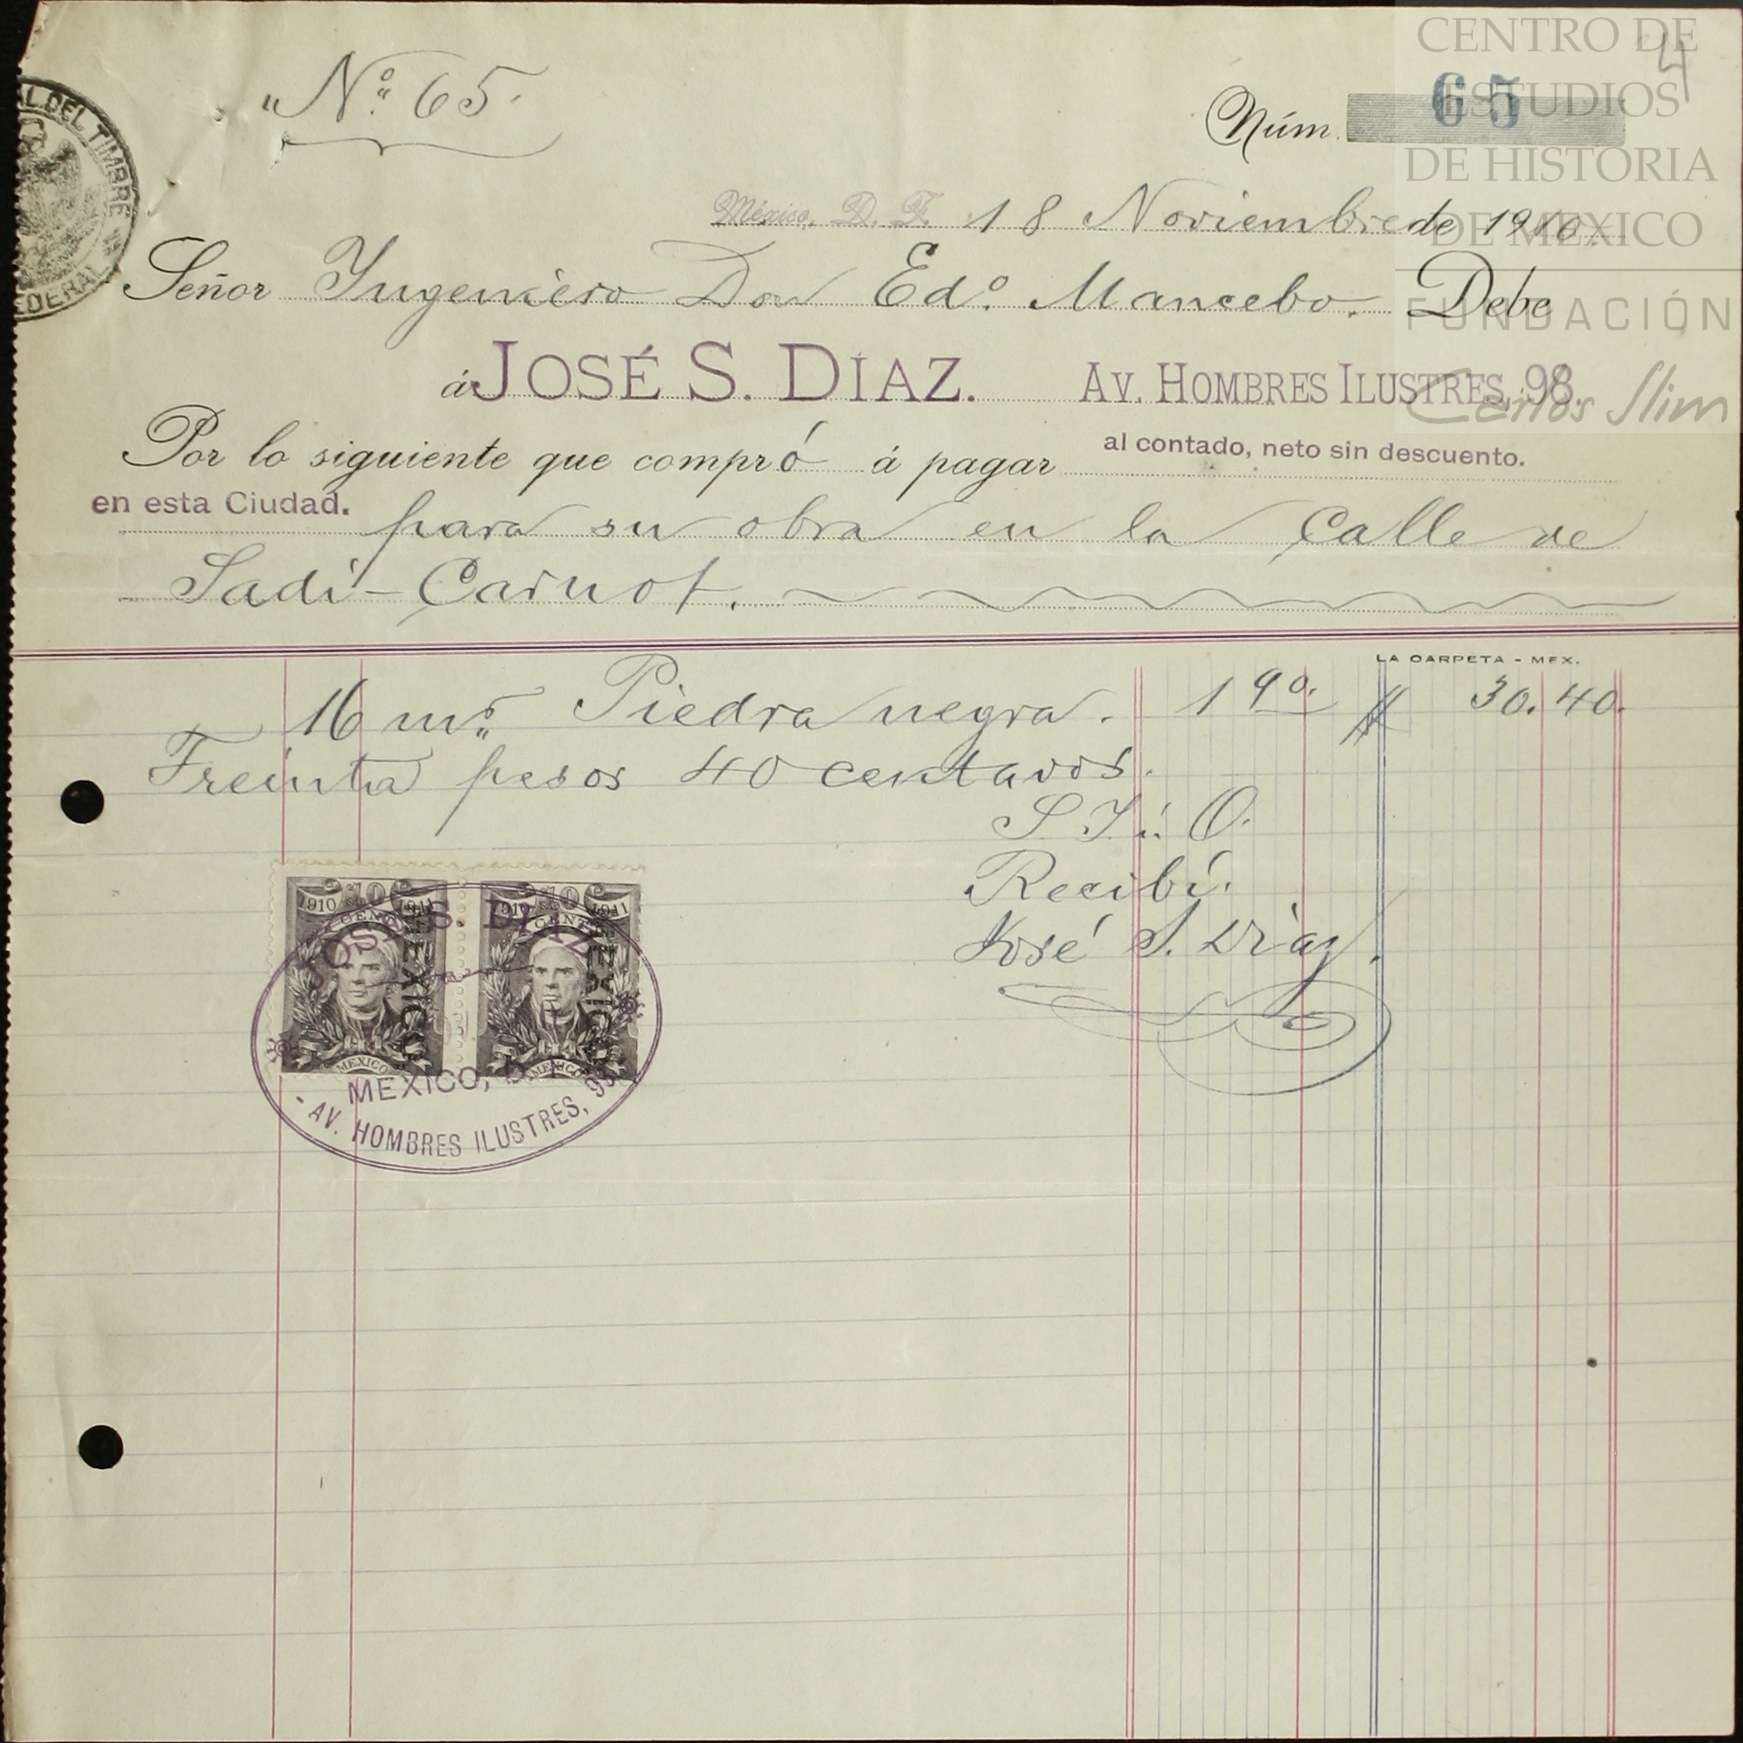 CENTRO DE
ESTUDIOS
DE HISTORIA
DE MEXICO
FUNDACIÓN
Carlos Slim
4
"Nº 65.
Núm. 65
L DEL TIMBRE
FEDERAL
México, D. F. 18 Noviembre de 1910.
Señor Ingeniero Don Edº Mancebo. Debe
á JOSÉ S. DÍAZ. AV. HOMBRES ILUSTRES, 98.
Por lo siguiente que compró á pagar al contado, neto sin descuento.
en esta Ciudad. para su obra en la Calle de
Sadi-Carnot.
LA CARPETA - MEX.
16 m. Piedra negra. 1 90. $ 30.40.
Treinta pesos 40 centavos.
S. Y. ú O.
Recibí.
José S. Díaz.
1910 10 1911
CENT
MEXICO
MEXICO
1910 10 1911
CENT
MEXICO
MEXICO
JOSE S. DIAZ
MEXICO, D. F.
- AV. HOMBRES ILUSTRES, 98